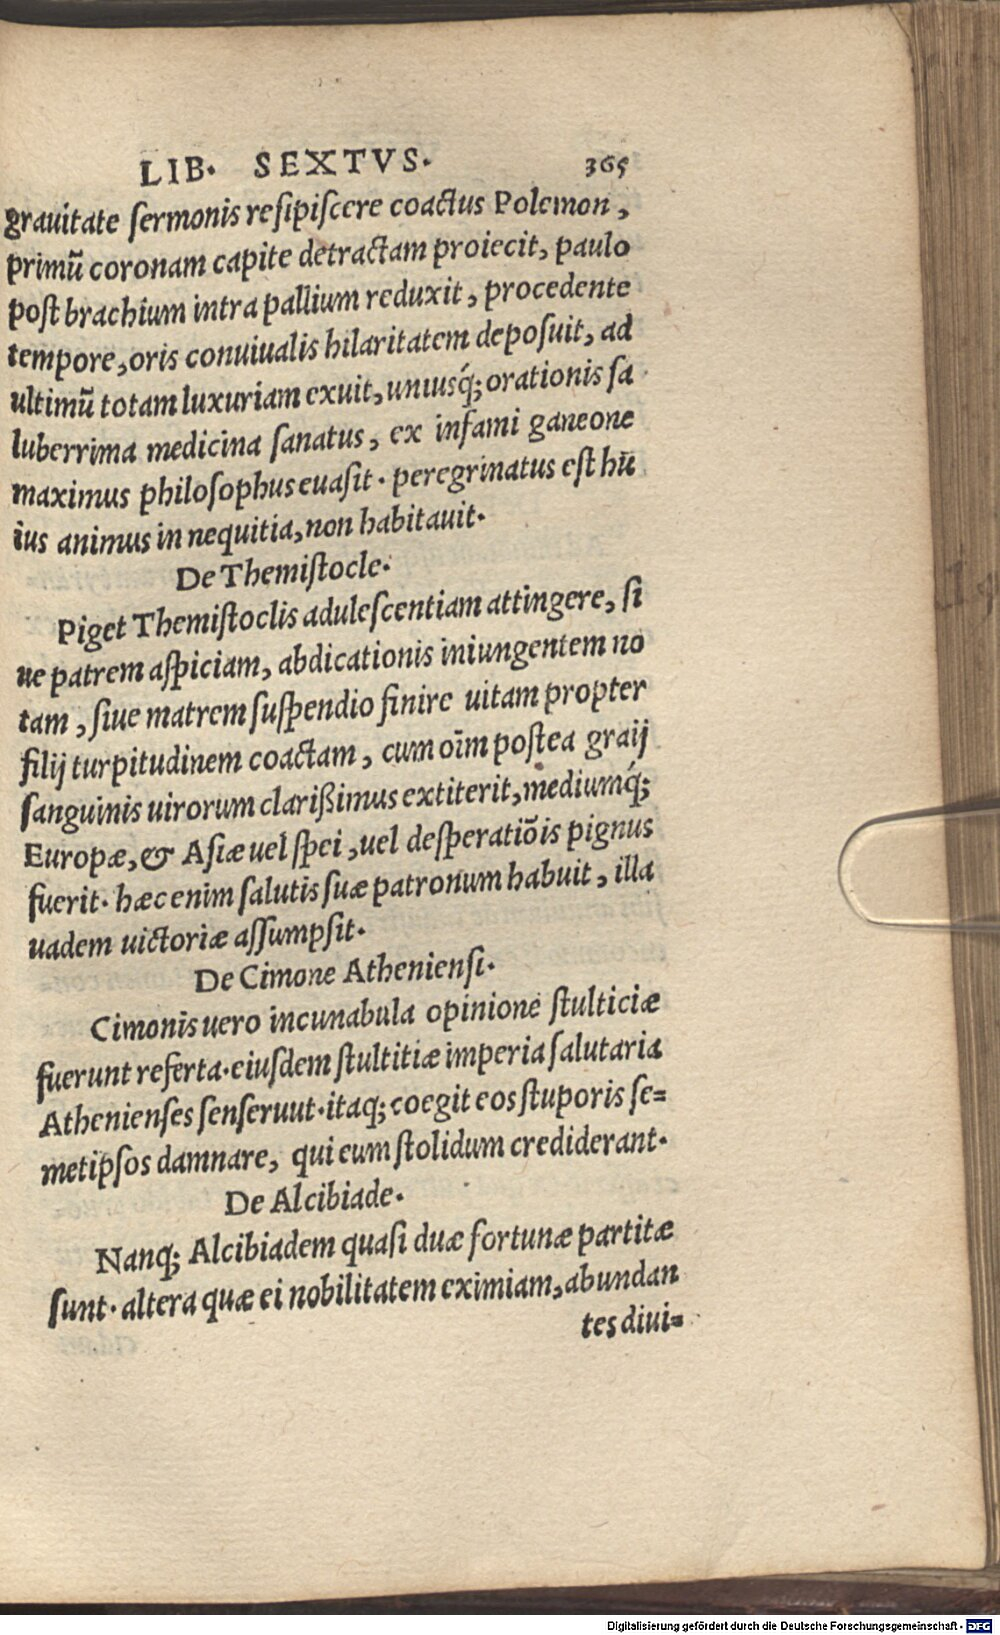 LIB. SEXTVS. 365
grauitate ſermonis reſipiſcere coactus Polemon,
primū coronam capite detractam proiecit, paulo
poſt brachium intra pallium reduxit, procedente
tempore, oris conuiualis hilaritatem depoſuit, ad
ultimū totam luxuriam exuit, uniusq́; orationis ſa
luberrima medicina ſanatus, ex infami ganeone
maximus philoſophus euaſit. peregrinatus eſt hū
ius animus in nequitia, non habitauit.
De Themiſtocle.
Piget Themiſtoclis aduleſcentiam attingere, ſi
ue patrem aſpiciam, abdicationis iniungentem no
tam, ſiue matrem ſuſpendio finire uitam propter
filij turpitudinem coactam, cum oīm poſtea graij
ſanguinis uirorum clarißimus extiterit, mediumq́;
Europæ, & Aſiæ uel ſpei, uel deſperatiōis pignus
fuerit. hæc enim ſalutis ſuæ patronum habuit, illa
uadem uictoriæ aſſumpſit.
De Cimone Athenienſi.
Cimonis uero incunabula opinione ſtulticiæ
fuerunt referta. eiuſdem ſtultitiæ imperia ſalutaria
Athenienſes ſenſeruut. itaq; coegit eos ſtuporis ſe=
metipſos damnare, qui eum ſtolidum crediderant.
De Alcibiade.
Nanq; Alcibiadem quaſi duæ fortunæ partitæ
ſunt. altera quæ ei nobilitatem eximiam, abundan
tes diui=
Digitalisierung gefördert durch die Deutsche Forschungsgemeinschaft - DFG